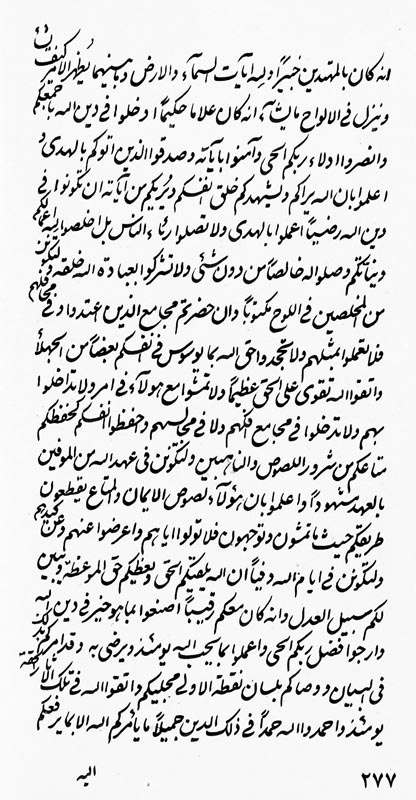 انه كان بالمهتدين خبيرا وله ايات السماء والارض وما بينهما يظهر الامر كيف
وينزل فى الالواح ما يشاء انه كان علاما حكيما ادخلوا فى دين الله باجمعكم
وانصروا اولاء ربكم الحى وآمنوا باياته وصدقوا الذين اتوكم بالهدى و
اعلموا بان الله يراكم وليشهدكم خلق انفسكم ويريكم من آياته ان تكونوا فى
دين الله رضيا اعملوا بالهدى ولا تصلوا رئاء الناس بل اخلصوا لله اعمالكم
ونياتكم وصلوا له خالصا من دون شئى ولا تشركوا بعبادة الله خلقه ولتكونن
من المخلصين فى اللوح مكتوبا وان حضرتم مجامع الذين اعتدوا فى محافلهم
فلا تعملوا بمثلهم ولا تجحدوا حق الله بما يوسوس فى نفسكم بعضا من الجهلاء
واتقوا الله تقوى على الحق عظيما ولا تمشوا مع هولاء فى امر ولا تداخلوا
بهم ولا تدخلوا فى مجامع افكهم ولا فى مجالسهم واحفظوا انفسكم كحفظكم
متاعكم من شرور اللصوص والناهبين ولتكونن فى عهد الله من الموفين
بالعهد مشهودا واعلموا بان هؤلاء لصوص الايمان والمتاع يقطعون
طريقكم حيث ما تمشون وتوجهون فلا تولوا اياهم واعرضوا عنهم وعن كيدهم
ولتكونن فى ايام الله وفيا ان الله يلقيكم الحق ويعظكم حق الموعظة ويبين
لكم سبيل العدل وانه كان معكم رقيبا اصنعوا بما هو خير فى دين الله
وارجوا فضل ربكم الحى واعملوا بما يحب الله يومئذ ويرضى به وقد امركم بذلك
فى البيان ووصاكم بلسان نقطة الاولى محليكم واتقوا الله فى تلك الايام
يومئذ واحمدوا الله حمدا فى ذلك الدين جميلا ما يأمركم الله الا بما يرفعكم
اليه
٢٧٧